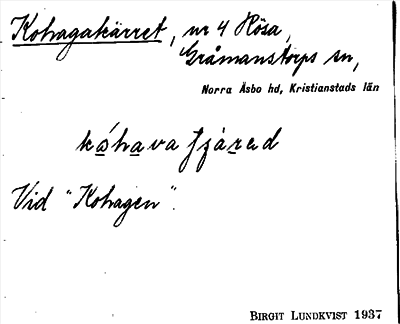 Kohagakärret, nr 4 Hösa,
Gråmanstorps sn,
Norra Åsbo hd, Kristianstads län
kóhava
Vid "Kohagen".
BIRGIT LUNDKVIST 1937